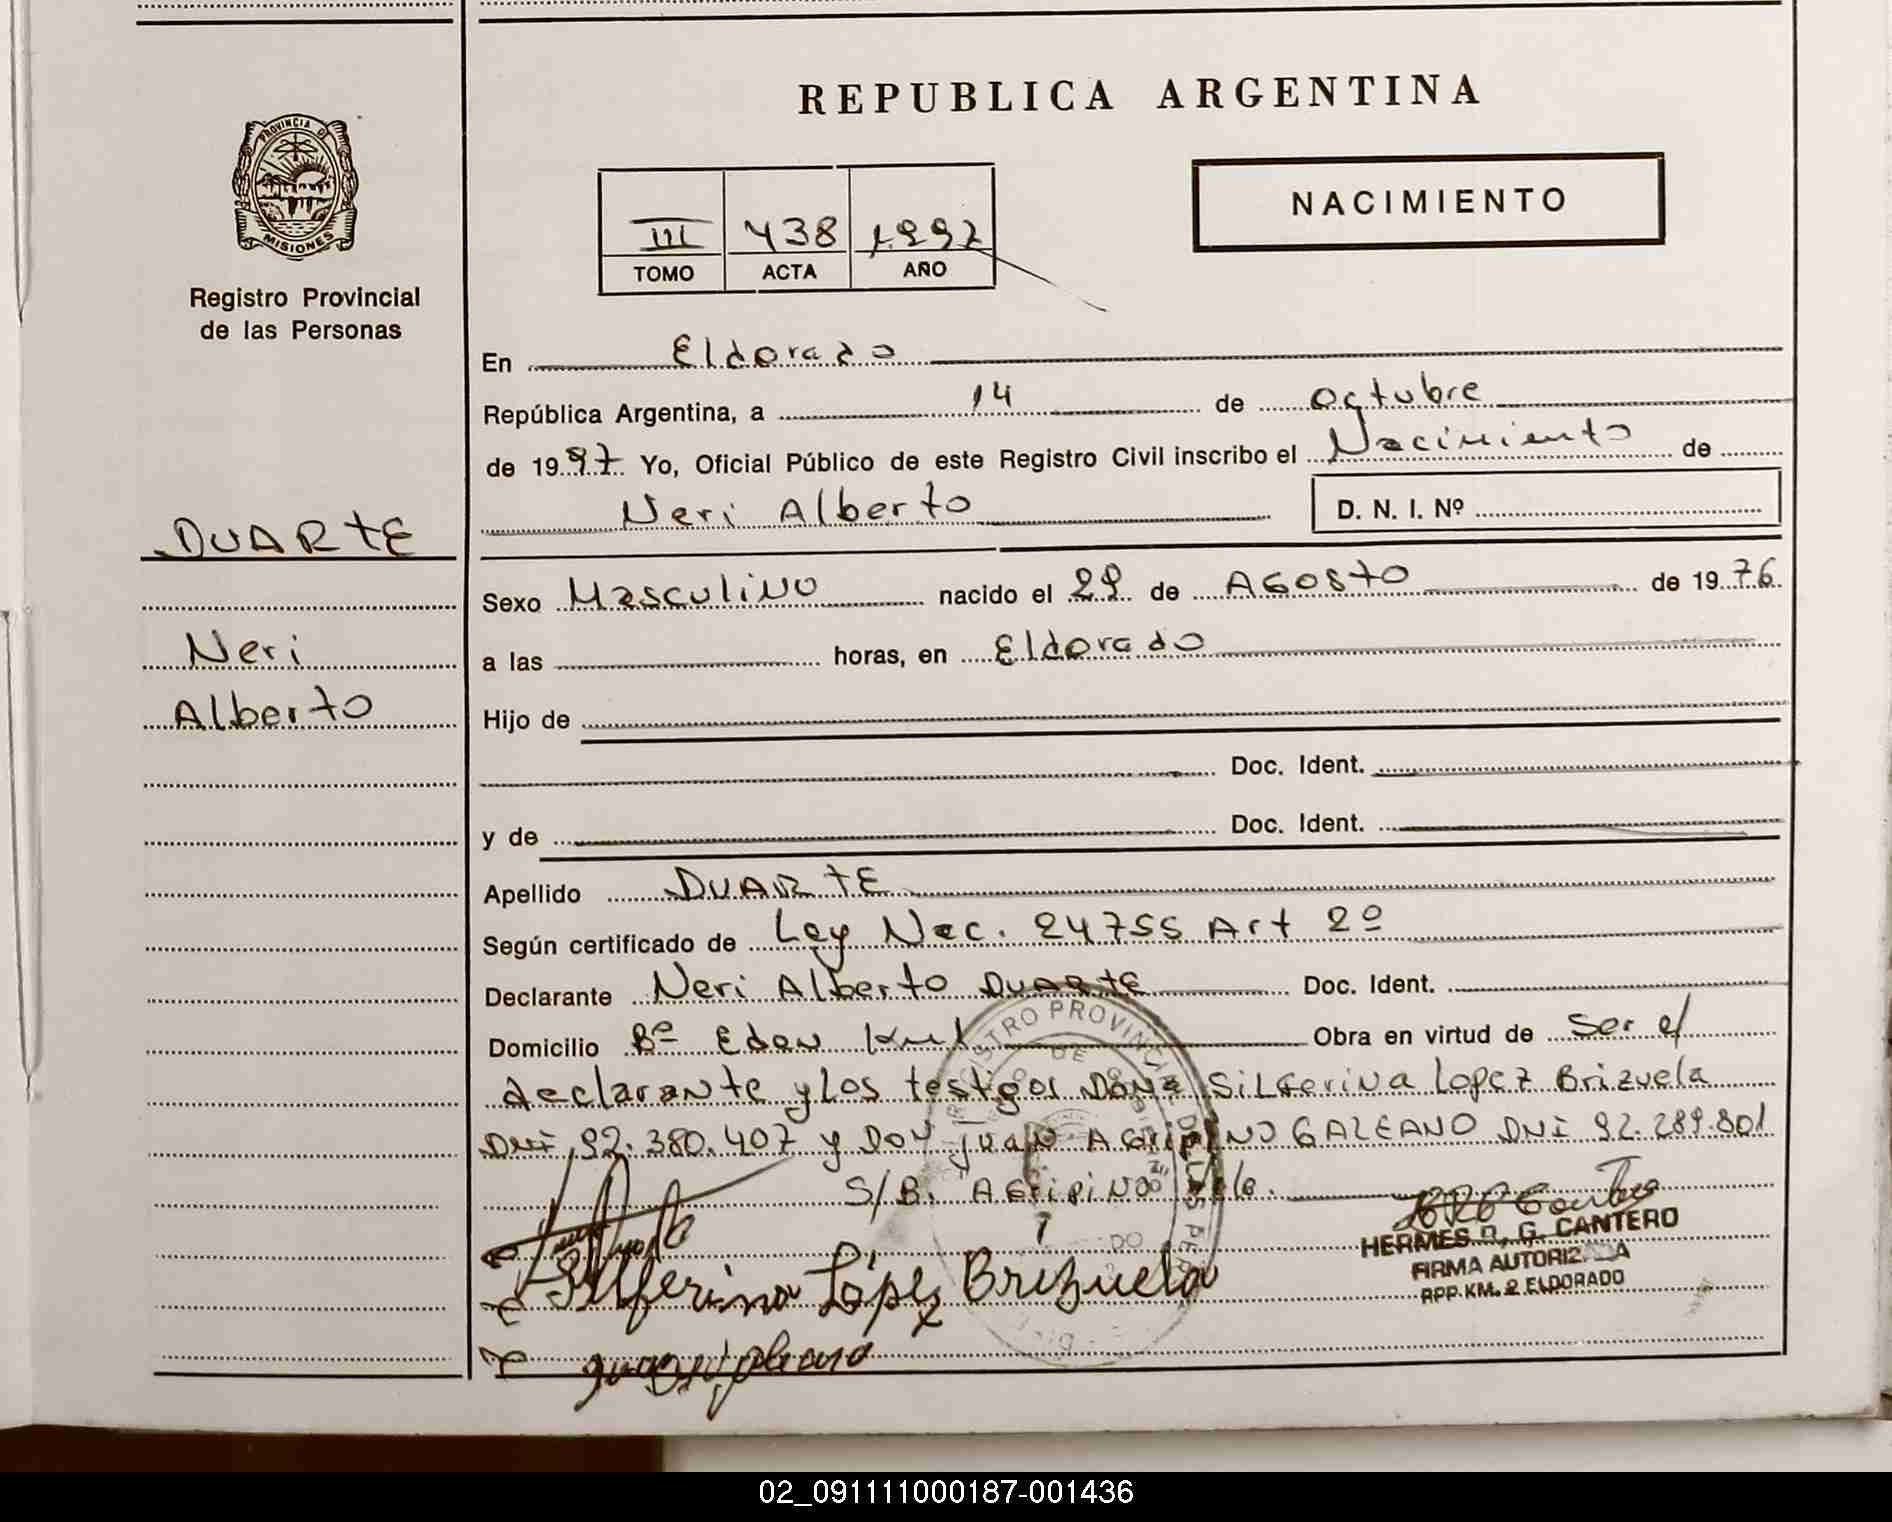 REPUBLICA ARGENTINA
PROVINCIA D
MISIONES
Registro Provincial
de las Personas
NACIMIENTO
III 438 1997
TOMO ACTA AÑO
En Eldorado
República Argentina, a 14 de octubre
de 1997 Yo, Oficial Público de este Registro Civil inscribo el Nacimiento de
Neri Alberto D. N. I. Nº
DUARTE
Neri
Alberto
Sexo Masculino nacido el 29 de AGOSTO de 1976
a las horas, en Eldorado
Hijo de
Doc. Ident.
y de Doc. Ident.
Apellido DUARTE
Según certificado de Ley Nac. 24755 Art 2º
Declarante Neri Alberto DUARTE Doc. Ident.
Domicilio Bº Eden Obra en virtud de ser el
declarante y los testigos Doña SiLFerina Lopez Brizuela
DNI 92.380.407 y Don Juan AGripino GALEANO DNI 92.289.801
S/B. AGripino Vale.
Silferina López Brizuela
HERMES R. G. CANTERO
FIRMA AUTORIZADA
RPP. KM. 2 ELDORADO
02_091111000187-001436